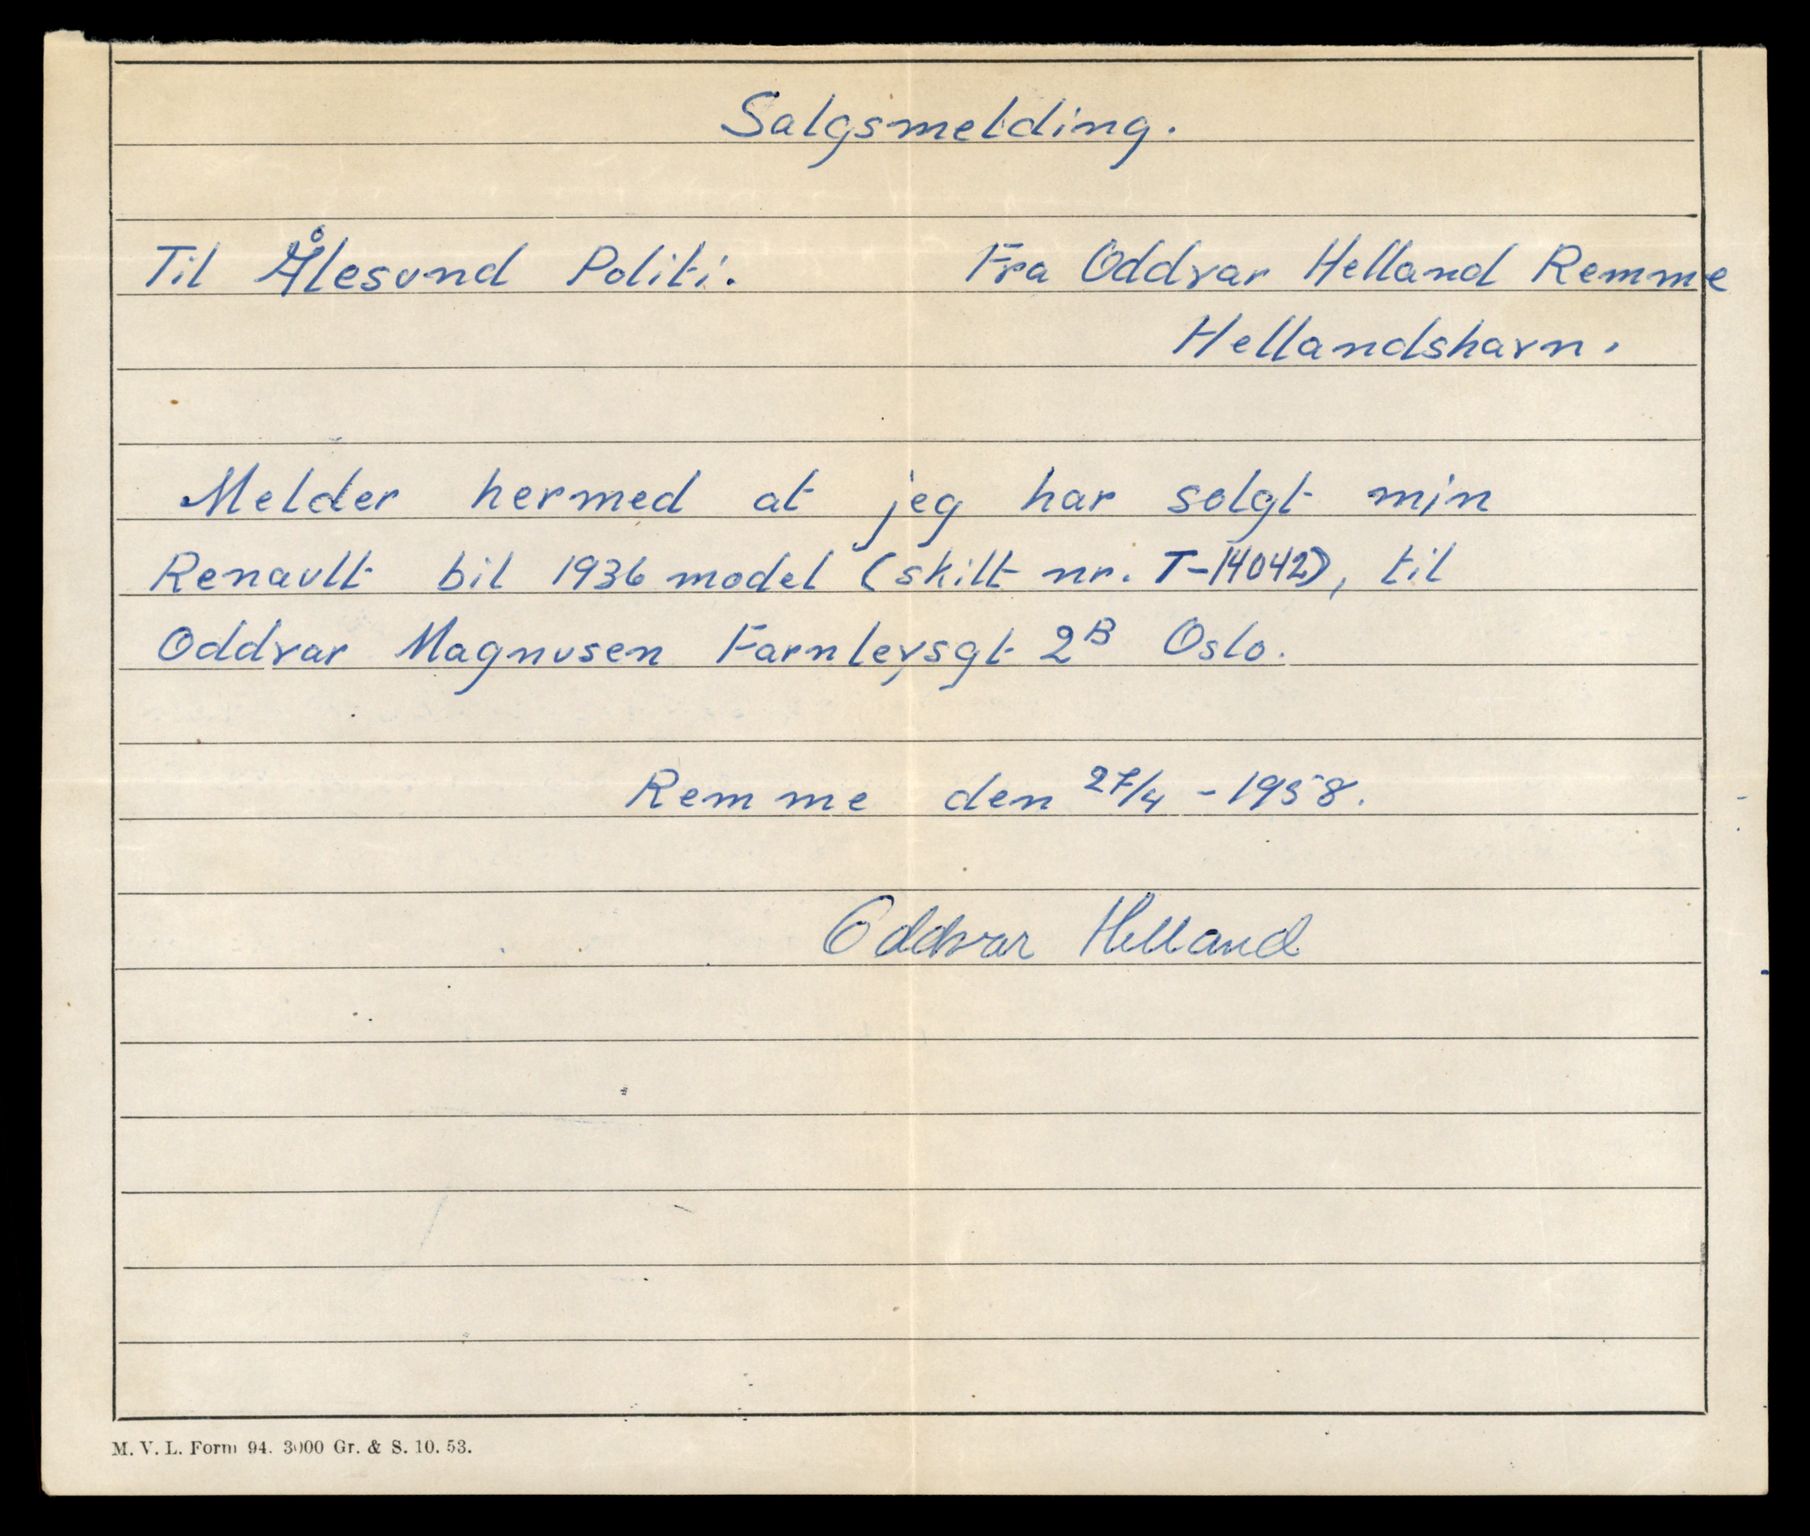 Salgsmelding.
Til Ålesund Politi. Fra Oddvar Helland Remme
Hellandshavn.
Melder hermed at jeg har solgt min
Renault bil 1936 model (skilt nr. T-14042), til
Oddvar Magnusen Farnleysgt 2B Oslo.
Remme den 27/4 - 1958.
Oddvar Helland
M. V. L. Form 94. 3000 Gr. & S. 10. 53.